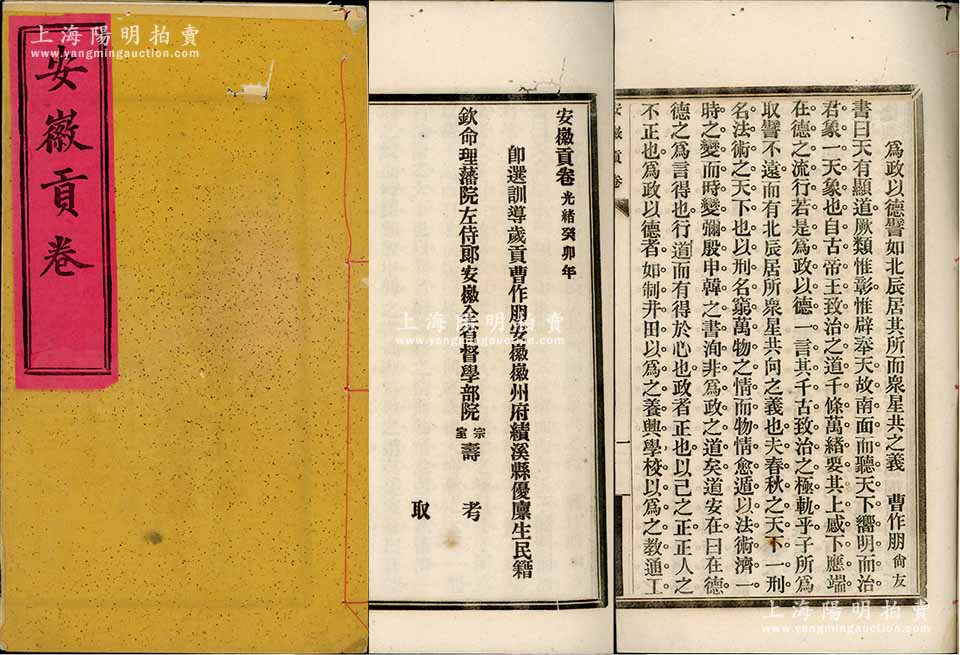 上海陽明拍賣
www.yangmingauction.com
安徽貢卷
安徽貢卷 光緒癸卯年
即選訓導歲貢曹作朋安徽徽州府績溪縣優廩生民籍
欽命理藩院左侍郎安徽全省督學部院宗室壽 考
取
上海陽明拍賣
www.yangmingauction.com
為政以德譬如北辰居其所而衆星共之義 曹作朋 尙友
書曰天有顯道厥類惟彰惟辟奉天故南面而聽天下嚮明而治
君象一天象也自古帝王致治之道千條萬緖要其上感下應端
在德之流行若是為政以德一言其千古致治之極軌乎子所為
取譬不遠而有北辰居所衆星共向之義也夫春秋之天下一刑
名法術之天下也以刑名窮萬物之情而物情愈遁以法術濟一
時之變而時變彌殷申韓之書洵非為政之道矣道安在曰在德
德之為言得也行道而有得於心也政者正也以己之正正人之
不正也為政以德者如制井田以為之養興學校以為之教通工
安徽貢卷
一
上海陽明拍賣
www.yangmingauction.com